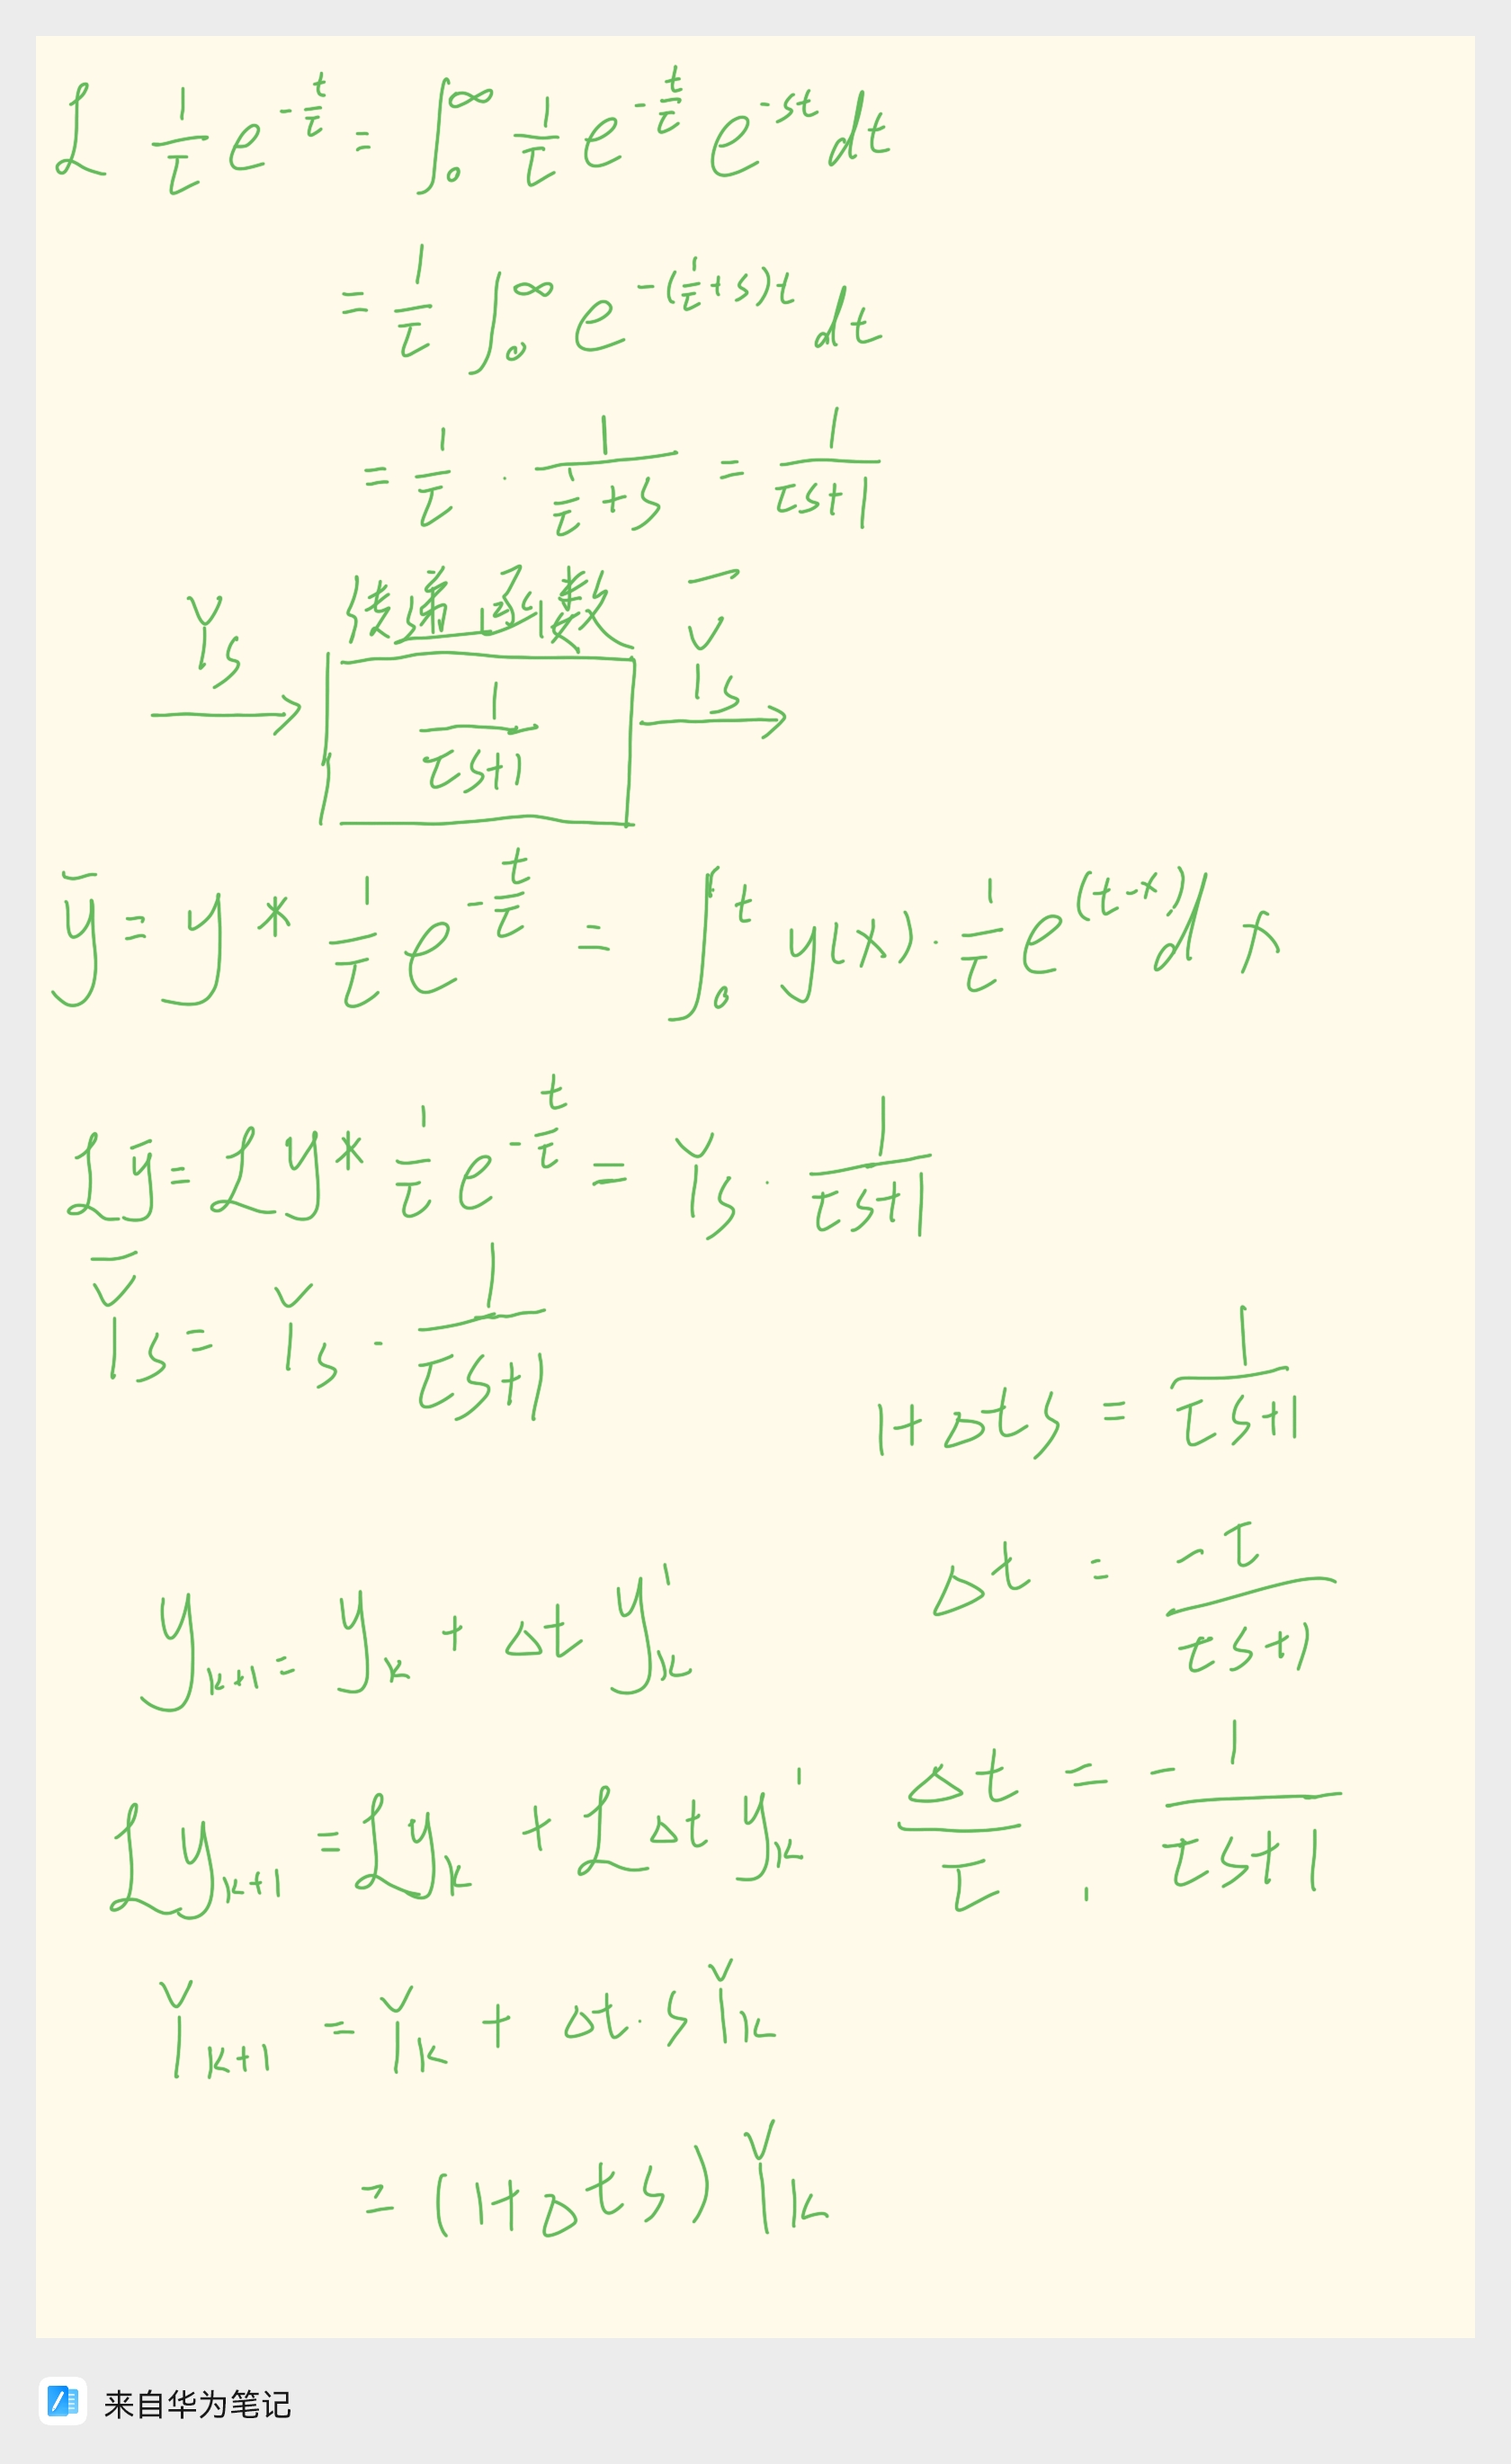 ℒ 1/τ e^(-t/τ) = ∫₀^∞ 1/τ e^(-t/τ) e^(-st) dt
= 1/τ ∫₀^∞ e^(-(1/τ+s)t) dt
= 1/τ · 1/(1/τ+s) = 1/(τs+1)
传递函数
Ys → 1/(τs+1) → Ȳs
ȳ = y * 1/τ e^(-t/τ) = ∫₀^t y(x) · 1/τ e^(t-x) dx
ℒȳ = ℒ y * 1/τ e^(-t/τ) = Ys · 1/(τs+1)
Ȳs = Ys · 1/(τs+1)
1+Δts = 1/(τs+1)
Δt = -τ/(τs+1)
y_(k+1) = y_k + Δt y'_k
Δt/τ = -1/(τs+1)
ℒy_(k+1) = ℒy_k + ℒΔt y'_k
Y_(k+1) = Y_k + Δt·sY_k
= (1+Δts) Y_k
来自华为笔记